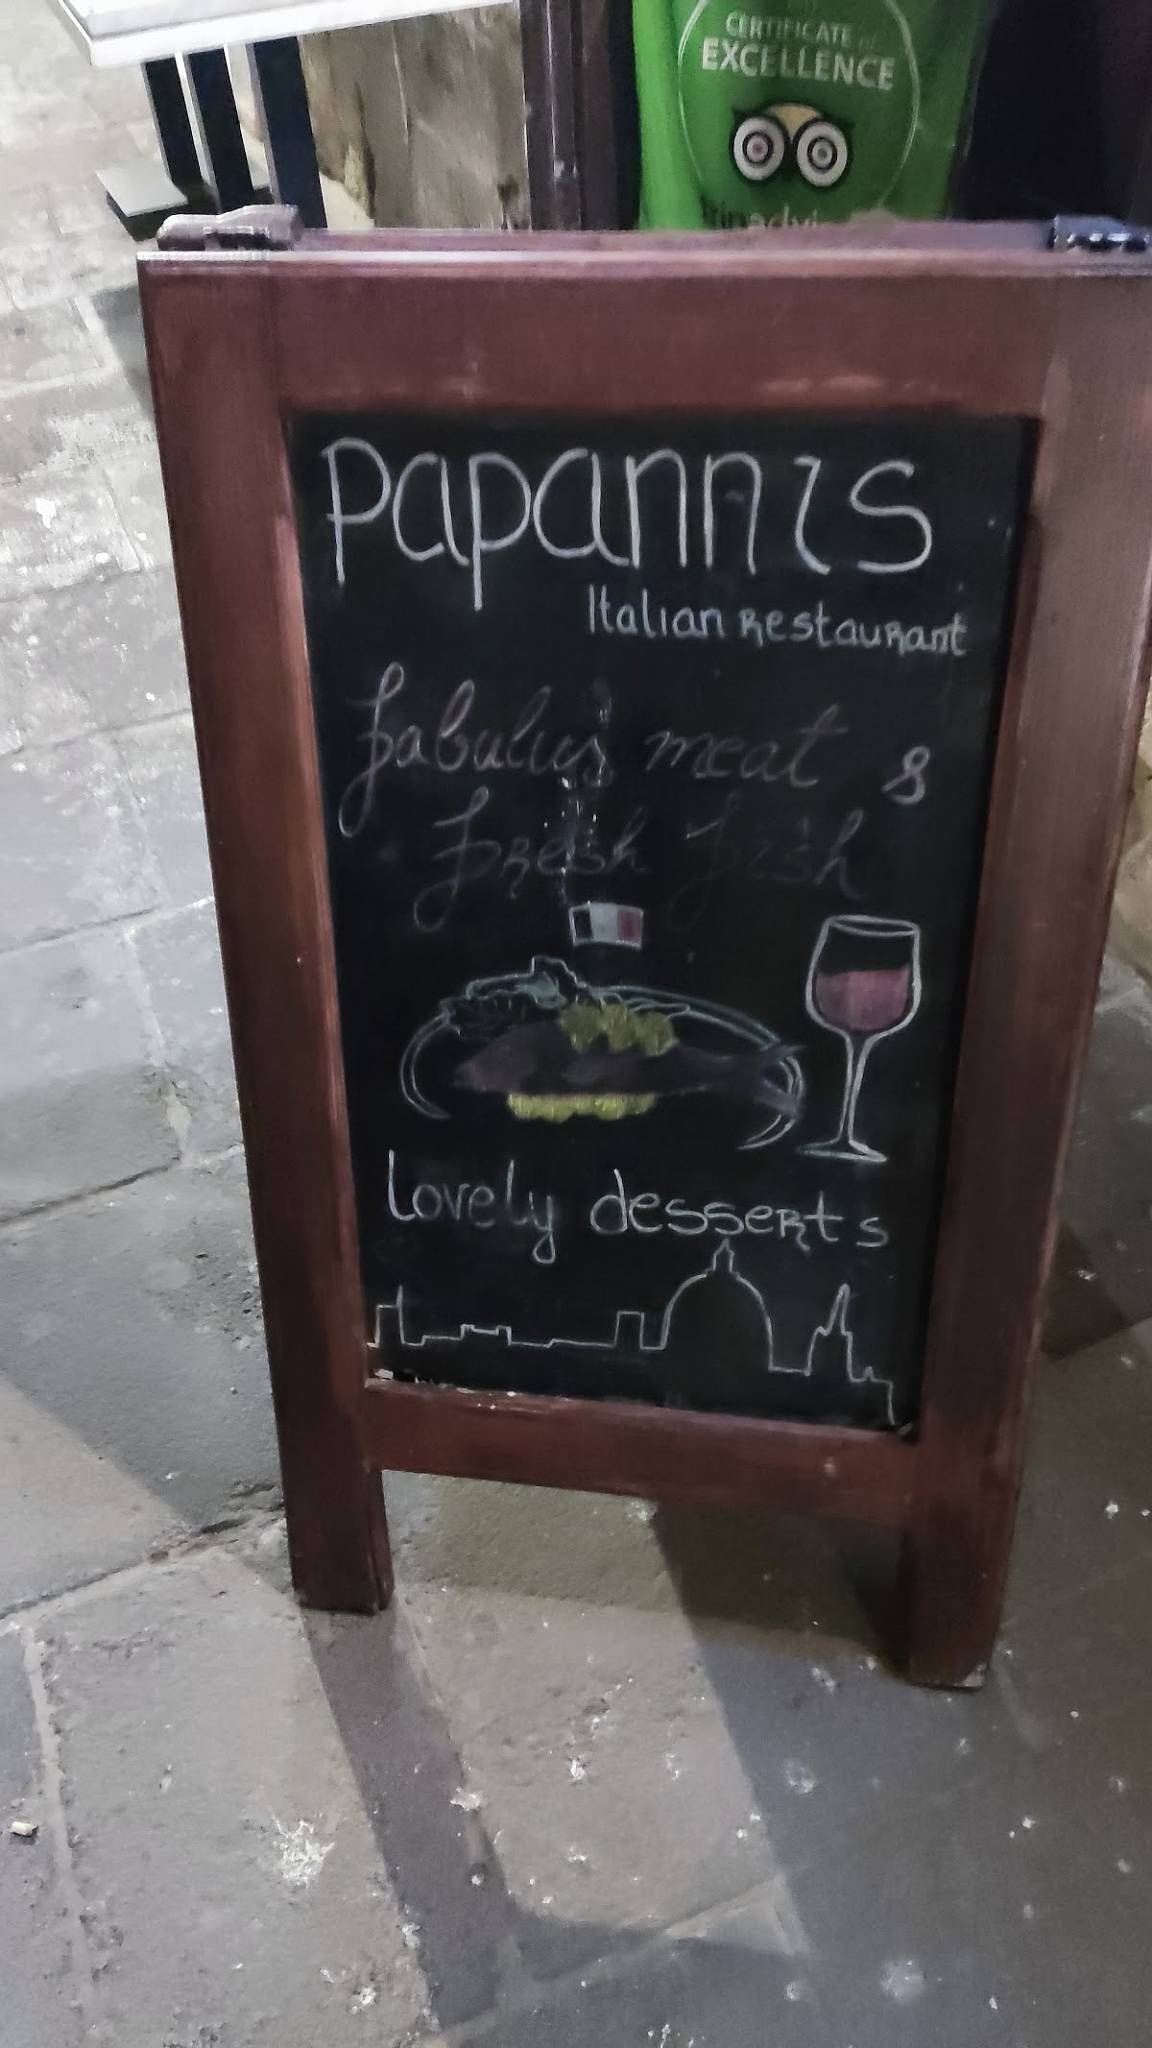 CERTIFICATE of
EXCELLENCE
tripadvi
Papannis
Italian Restaurant
fabulus meat &
fresh fish
Lovely desserts